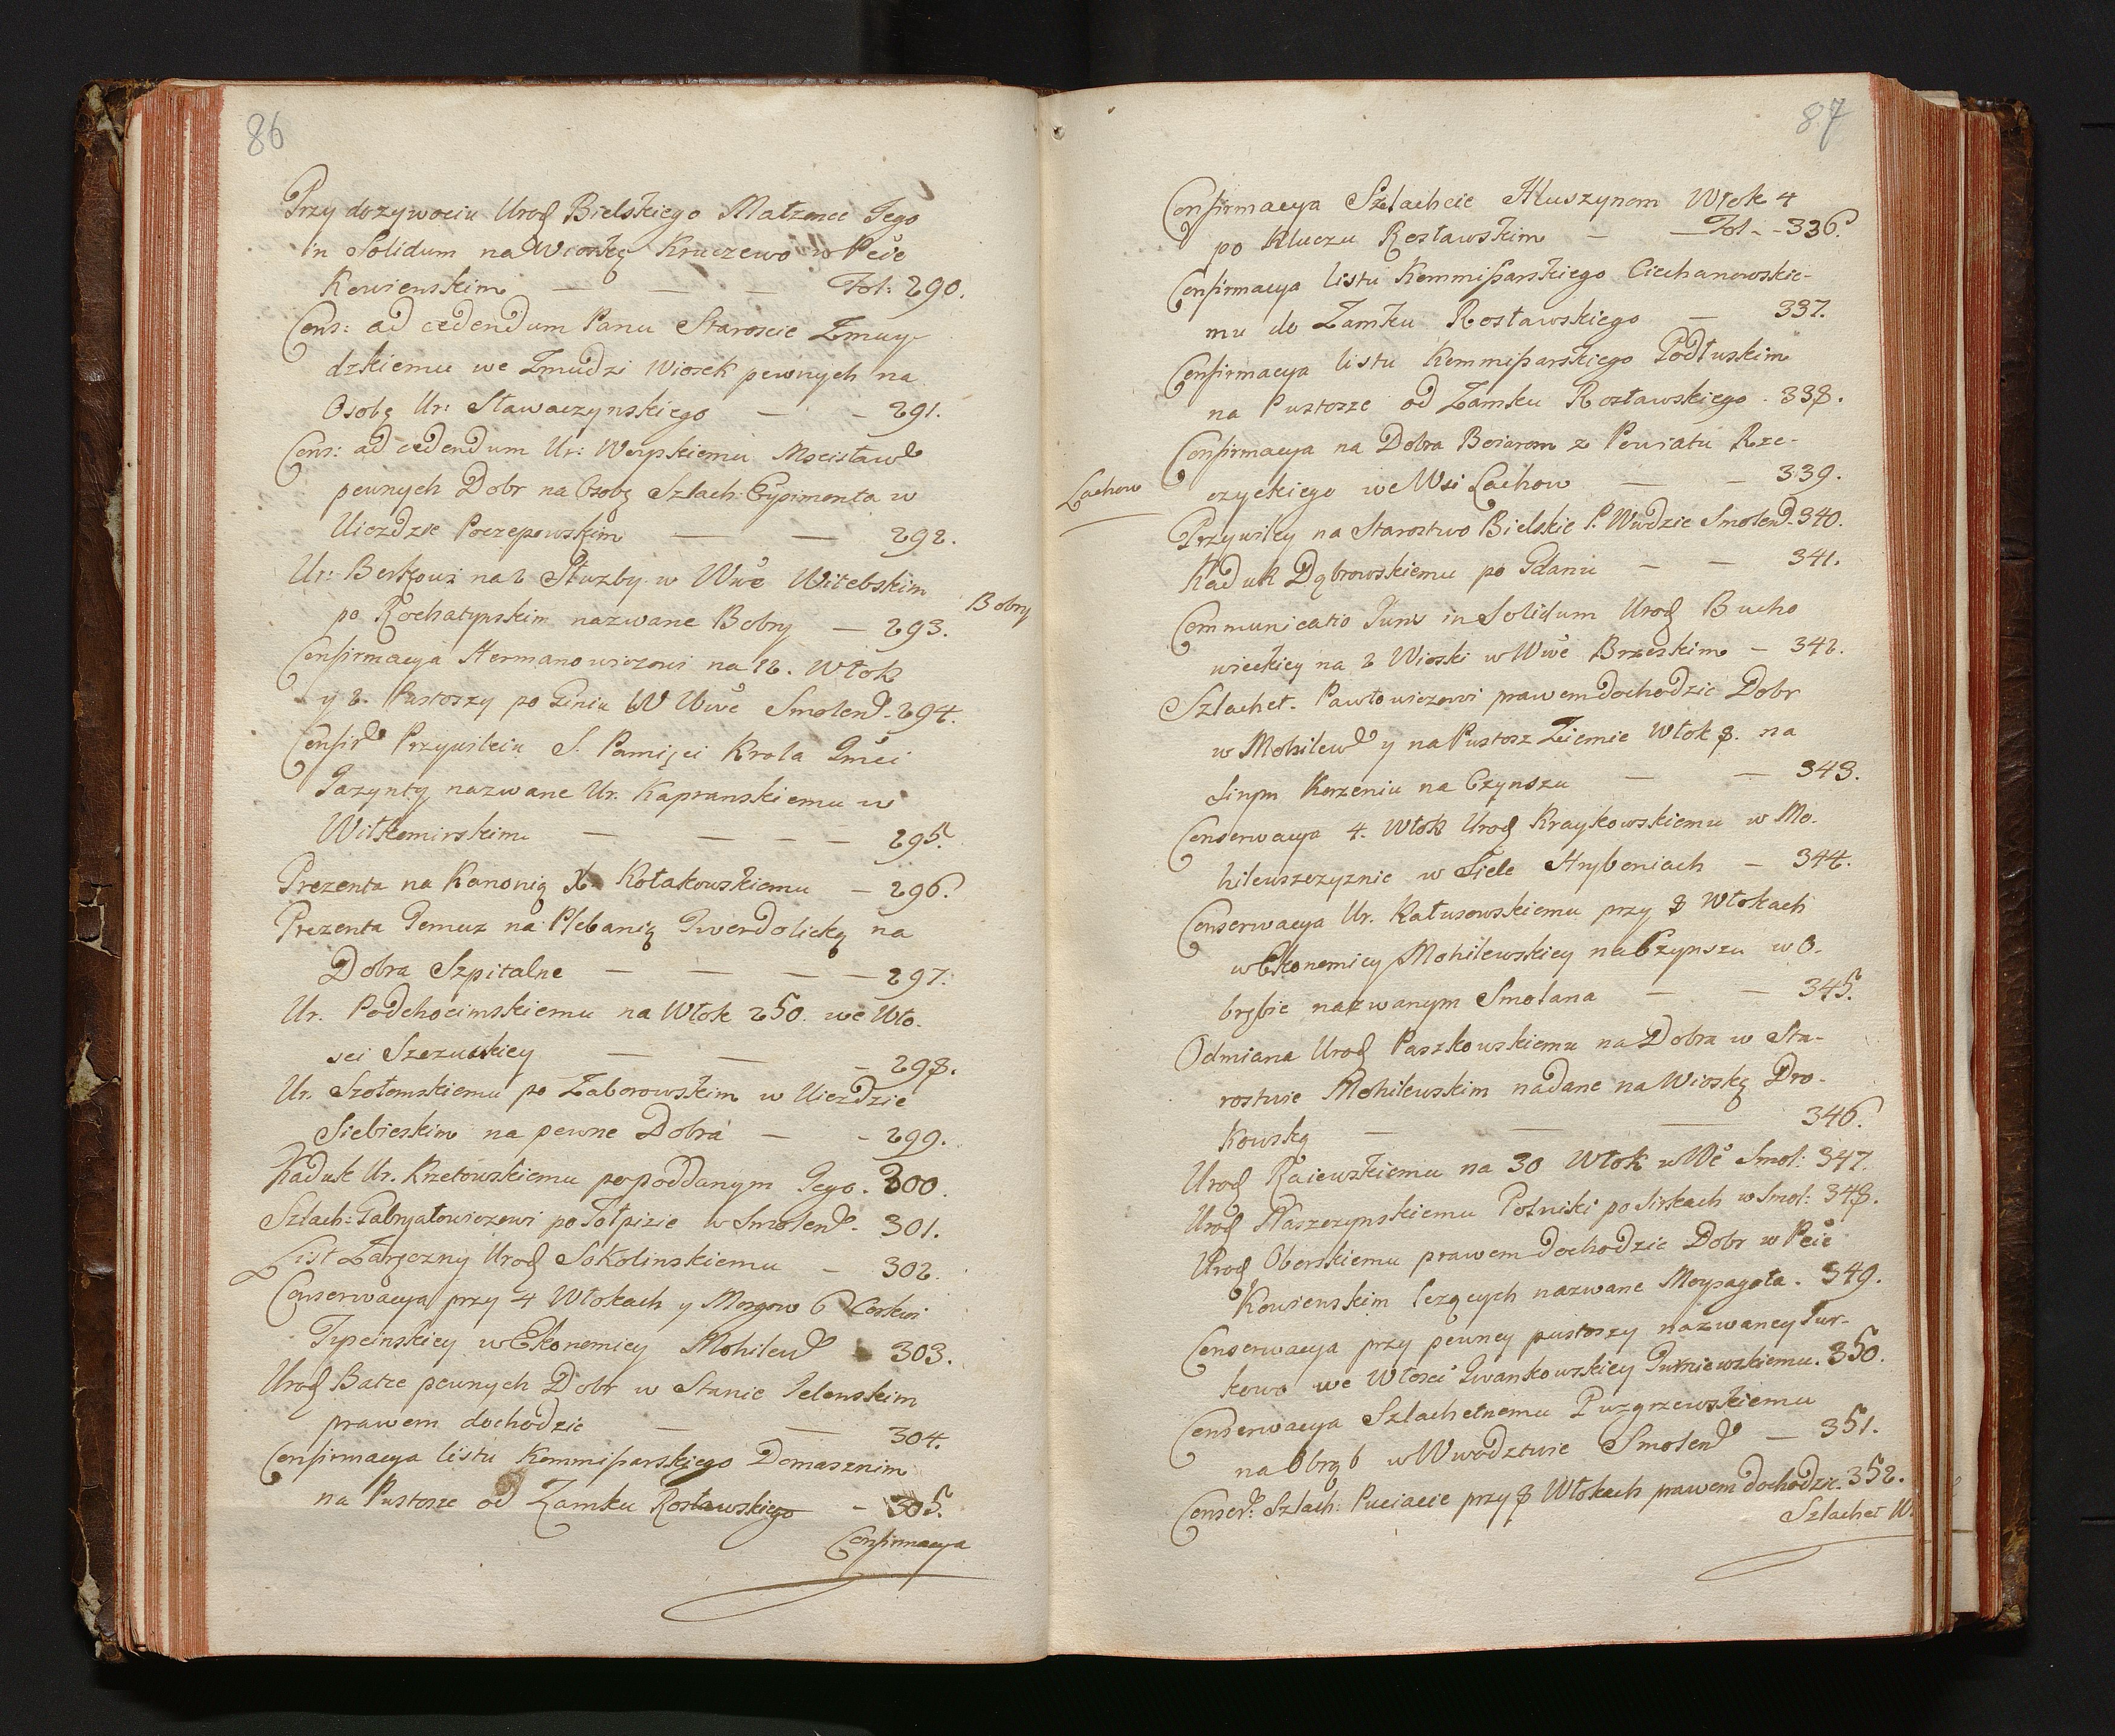 86
Przy dozywociu Urod Bielskiego Małzonce Jego
in Solidum na Wioskę Kruczewo w Pecie
Kowienskim — — — Fol: 290.
Cons: ad cedendum Panu Staroscie Zmuy-
dzkiemu we Zmudzi Wiosek pewnych na
Osobę Ur: Stawaczynskiego — - 291.
Cons: ad cedendum Ur: Woypskiemu Mscisław
pewnych Dobr na Osobę Szlach: Eypimonta w
Uiezdzie Poczepowskim — — 292.
Ur: Berkowi na 2 Służby w Wwe Witebskim
po Rochatynskim nazwane Bobry — 293.
Bobry
Confirmacya Hermanowiczowi na 12. Włok
y 2. Pustoszy po Giniu W Wwe Smolen. 294.
Confir Przywileiu S. Pamięci Krola Jmci
Jazynty nazwane Ur. Kapranskiemu w
Wiłkomirskim — — — — 295.
Prezenta na Kanonią X. Kołakowskiemu — 296.
Prezenta Temuz na Plebanią Twerdolicką na
Dobra Szpitalne — — — — 297.
Ur. Podchocimskiemu na Włok 250. we Wło-
sci Szczuckiey — — - 298.
Ur. Szołomskiemu po Zaborowskim w Uiezdzie
Siebieskim na pewne Dobra — - 299.
Kaduk Ur. Krzetowskiemu po poddanym Jego. 300.
Szlach: Gabryałowiczowi po Tołpizie w Smolen. 301.
List Zaręczny Urod Sokolinskiemu — 302.
Conserwacya przy 4 Włokach y Morgow 6
Typcinskiey w Ekonomiey Mohilew 303.
Urod Batce pewnych Dobr w Stanie Jelenskim
prawem dochodzic — — 304.
Confirmacya listu Kommissarskiego Domasznim
na Pustosze od Zamku Rosławskiego - 305.
Confirmacya
87
Confirmacya Szlachcie Hłuszynom Włok 4
po Kluczu Rosławskim — — Fol - 336.
Confirmacya listu Kommissarskiego Ciechanowskie-
mu do Zamku Rosławskiego — 337.
Confirmacya listu Kommissarskiego Podłuskim
na Pustosze od Zamku Rosławskiego. 338.
Confirmacya na Dobra Boiarom z Powiatu Rze-
Lachow
czyckiego we Wsi Lachow — — 339.
Przywiley na Starostwo Bielskie P. Wwdzie Smolen. 340.
Kaduk Dąbrowskiemu po Gdaniu — — 341.
Communicatio Juris in Solidum Urod Bucho
wieckiey na 2 Wioski w Wwe Brzeskim — 342.
Szlachet. Pawłowiczowi prawem dochodzic Dobr
w Mohilew y na Pustosz Ziemie Włok 8. na
Sinym Korzeniu na Czynszu — — 343.
Conserwacya 4. Włok Urod Kraykowskiemu w Mo-
hilewszczyznie w Siele Hrybeniach — 344.
Conserwacya Ur. Kałusowskiemu przy 8 Włokach
w Ekonomiey Mohilewskiey na Czynszu w O-
brębie nazwanym Smolana — — 345.
Odmiana Urod Paszkowskiemu na Dobra w Sta-
rostwie Mohilewskim nadane na Wioskę Dro-
kowską — — — 346.
Urod Raiewskiemu na 30 Włok w We Smol: 347.
Urod Płaszczynskiemu Połniski po Sirkach w Smol: 348.
Urod Oborskiemu prawem dochodzic Dobr w Pcie
Kowienskim lezących nazwane Moysagoła. 349.
Conserwacya przy pewney pustoszy nazwaney Sur-
kowo we Włosci Iwankowskiey Gurniewskiemu. 350.
Conserwacya Szlachetnemu Puzgrzewskiemu
na Obrąb w Wwodztwie Smolen — 351.
Conser: Szlach: Puciacie przy 8 Włokach prawem dochodzic. 352.
Szlachet W.